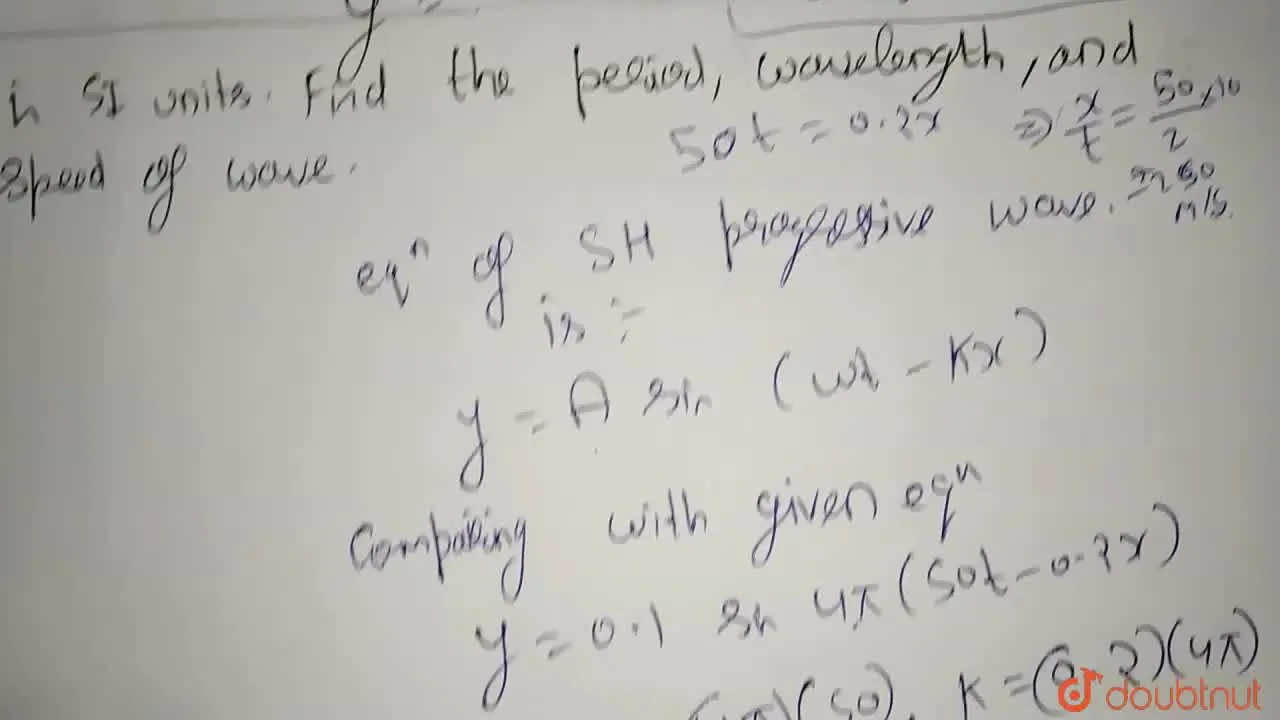 y =
in SI units. Find the period, wavelength, and
speed of wave.
50t = 0.2x ⇒ x/t = 50x10/2
m/s.
eqⁿ of SH progessive wave.
is :-
y = A sin (wt - Kx)
Comparing with given eqⁿ
y = 0.1 sin 4π(50t - 0.2x)
(50), K = (0.2)(4π)
doubtnut